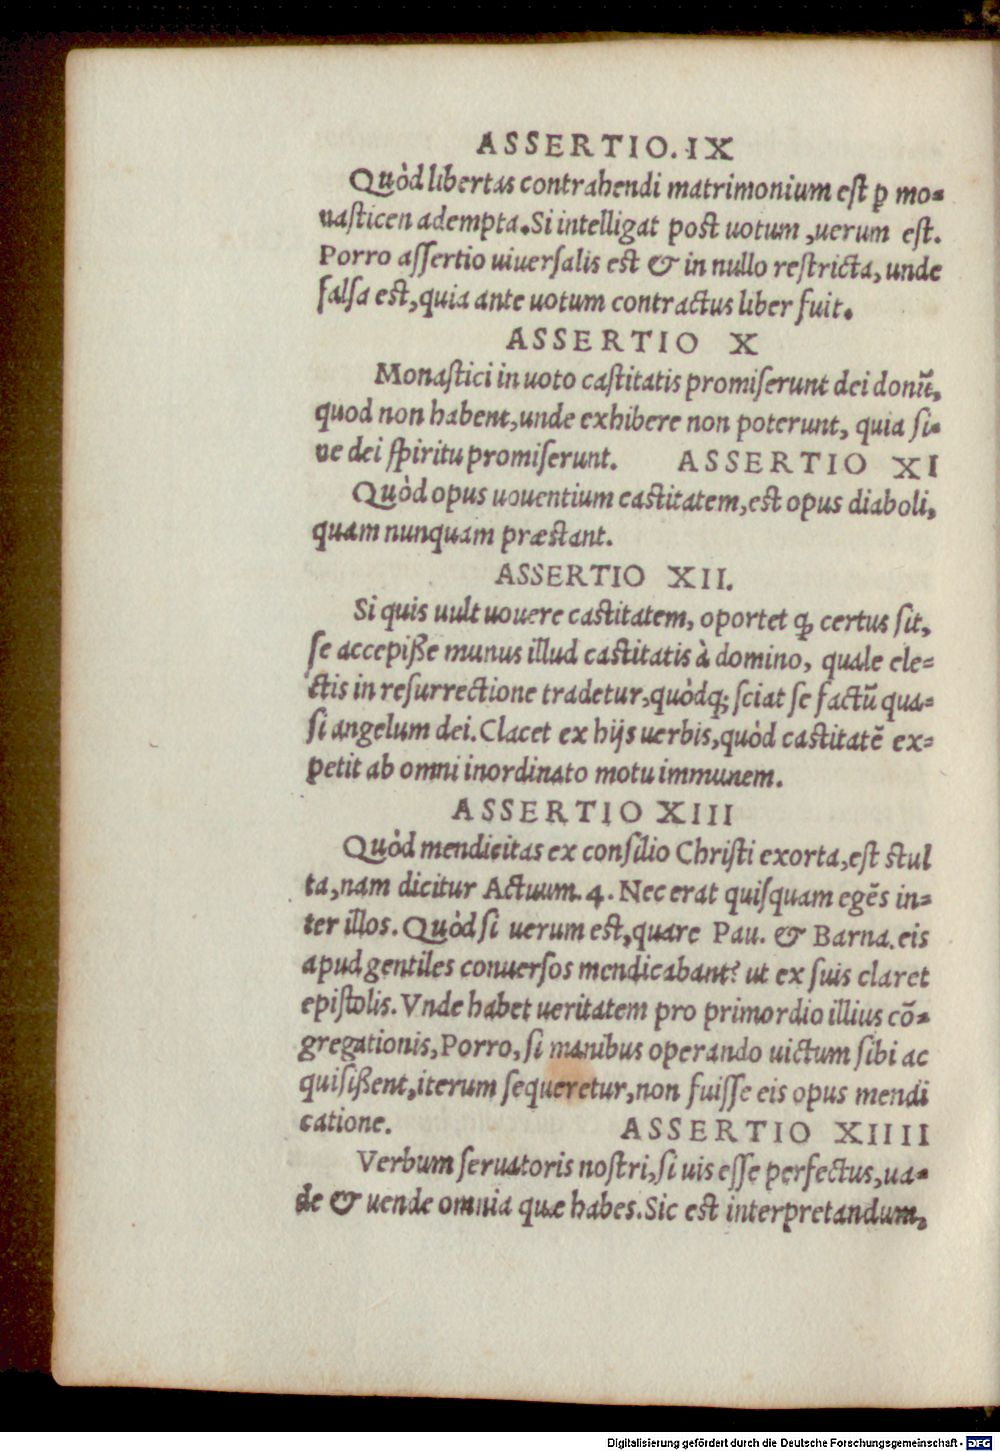 ASSERTIO. IX
Quòd libertas contrahendi matrimonium est ꝑ mo-
uasticen adempta. Si intelligat post uotum, uerum est.
Porro assertio uiuersalis est & in nullo restricta, unde
falsa est, quia ante uotum contractus liber fuit.
ASSERTIO X
Monastici in uoto castitatis promiserunt dei donũ,
quod non habent, unde exhibere non poterunt, quia si-
ue dei spiritu promiserunt. ASSERTIO XI
Quòd opus uouentium castitatem, est opus diaboli,
quam nunquam præstant.
ASSERTIO XII.
Si quis uult uouere castitatem, oportet ꝙ certus sit,
se accepiße munus illud castitatis à domino, quale ele-
ctis in resurrectione tradetur, quòdq; sciat se factũ qua-
si angelum dei. Clacet ex hijs uerbis, quòd castitatẽ ex-
petit ab omni inordinato motu immunem.
ASSERTIO XIII
Quòd mendicitas ex consilio Christi exorta, est stul
ta, nam dicitur Actuum. 4. Nec erat quisquam egẽs in-
ter illos. Quòd si uerum est, quare Pau. & Barna. eis
apud gentiles conuersos mendicabant? ut ex suis claret
epistolis. Vnde habet ueritatem pro primordio illius cõ-
gregationis, Porro, si manibus operando uictum sibi ac
quisißent, iterum sequeretur, non fuisse eis opus mendi
catione. ASSERTIO XIIII
Verbum seruatoris nostri, si uis esse perfectus, ua-
de & uende omnia quæ habes. Sic est interpretandum,
Digitalisierung gefördert durch die Deutsche Forschungsgemeinschaft - DFG